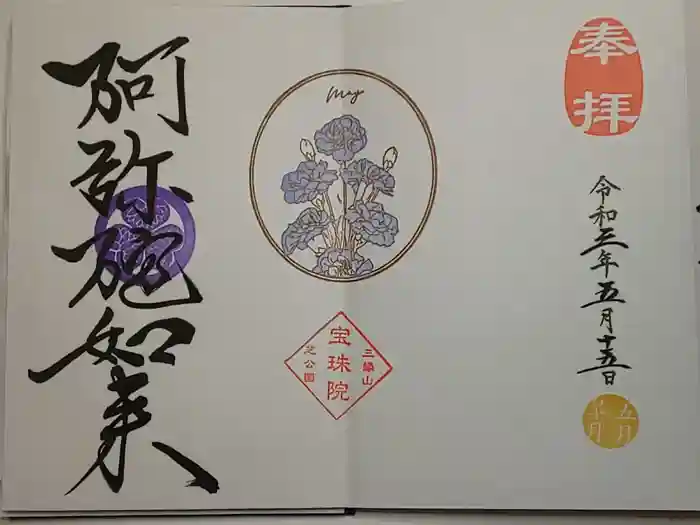 奉拝
令和三年五月十五日
五月
May
三縁山
宝珠院
芝公園
阿弥陀如来